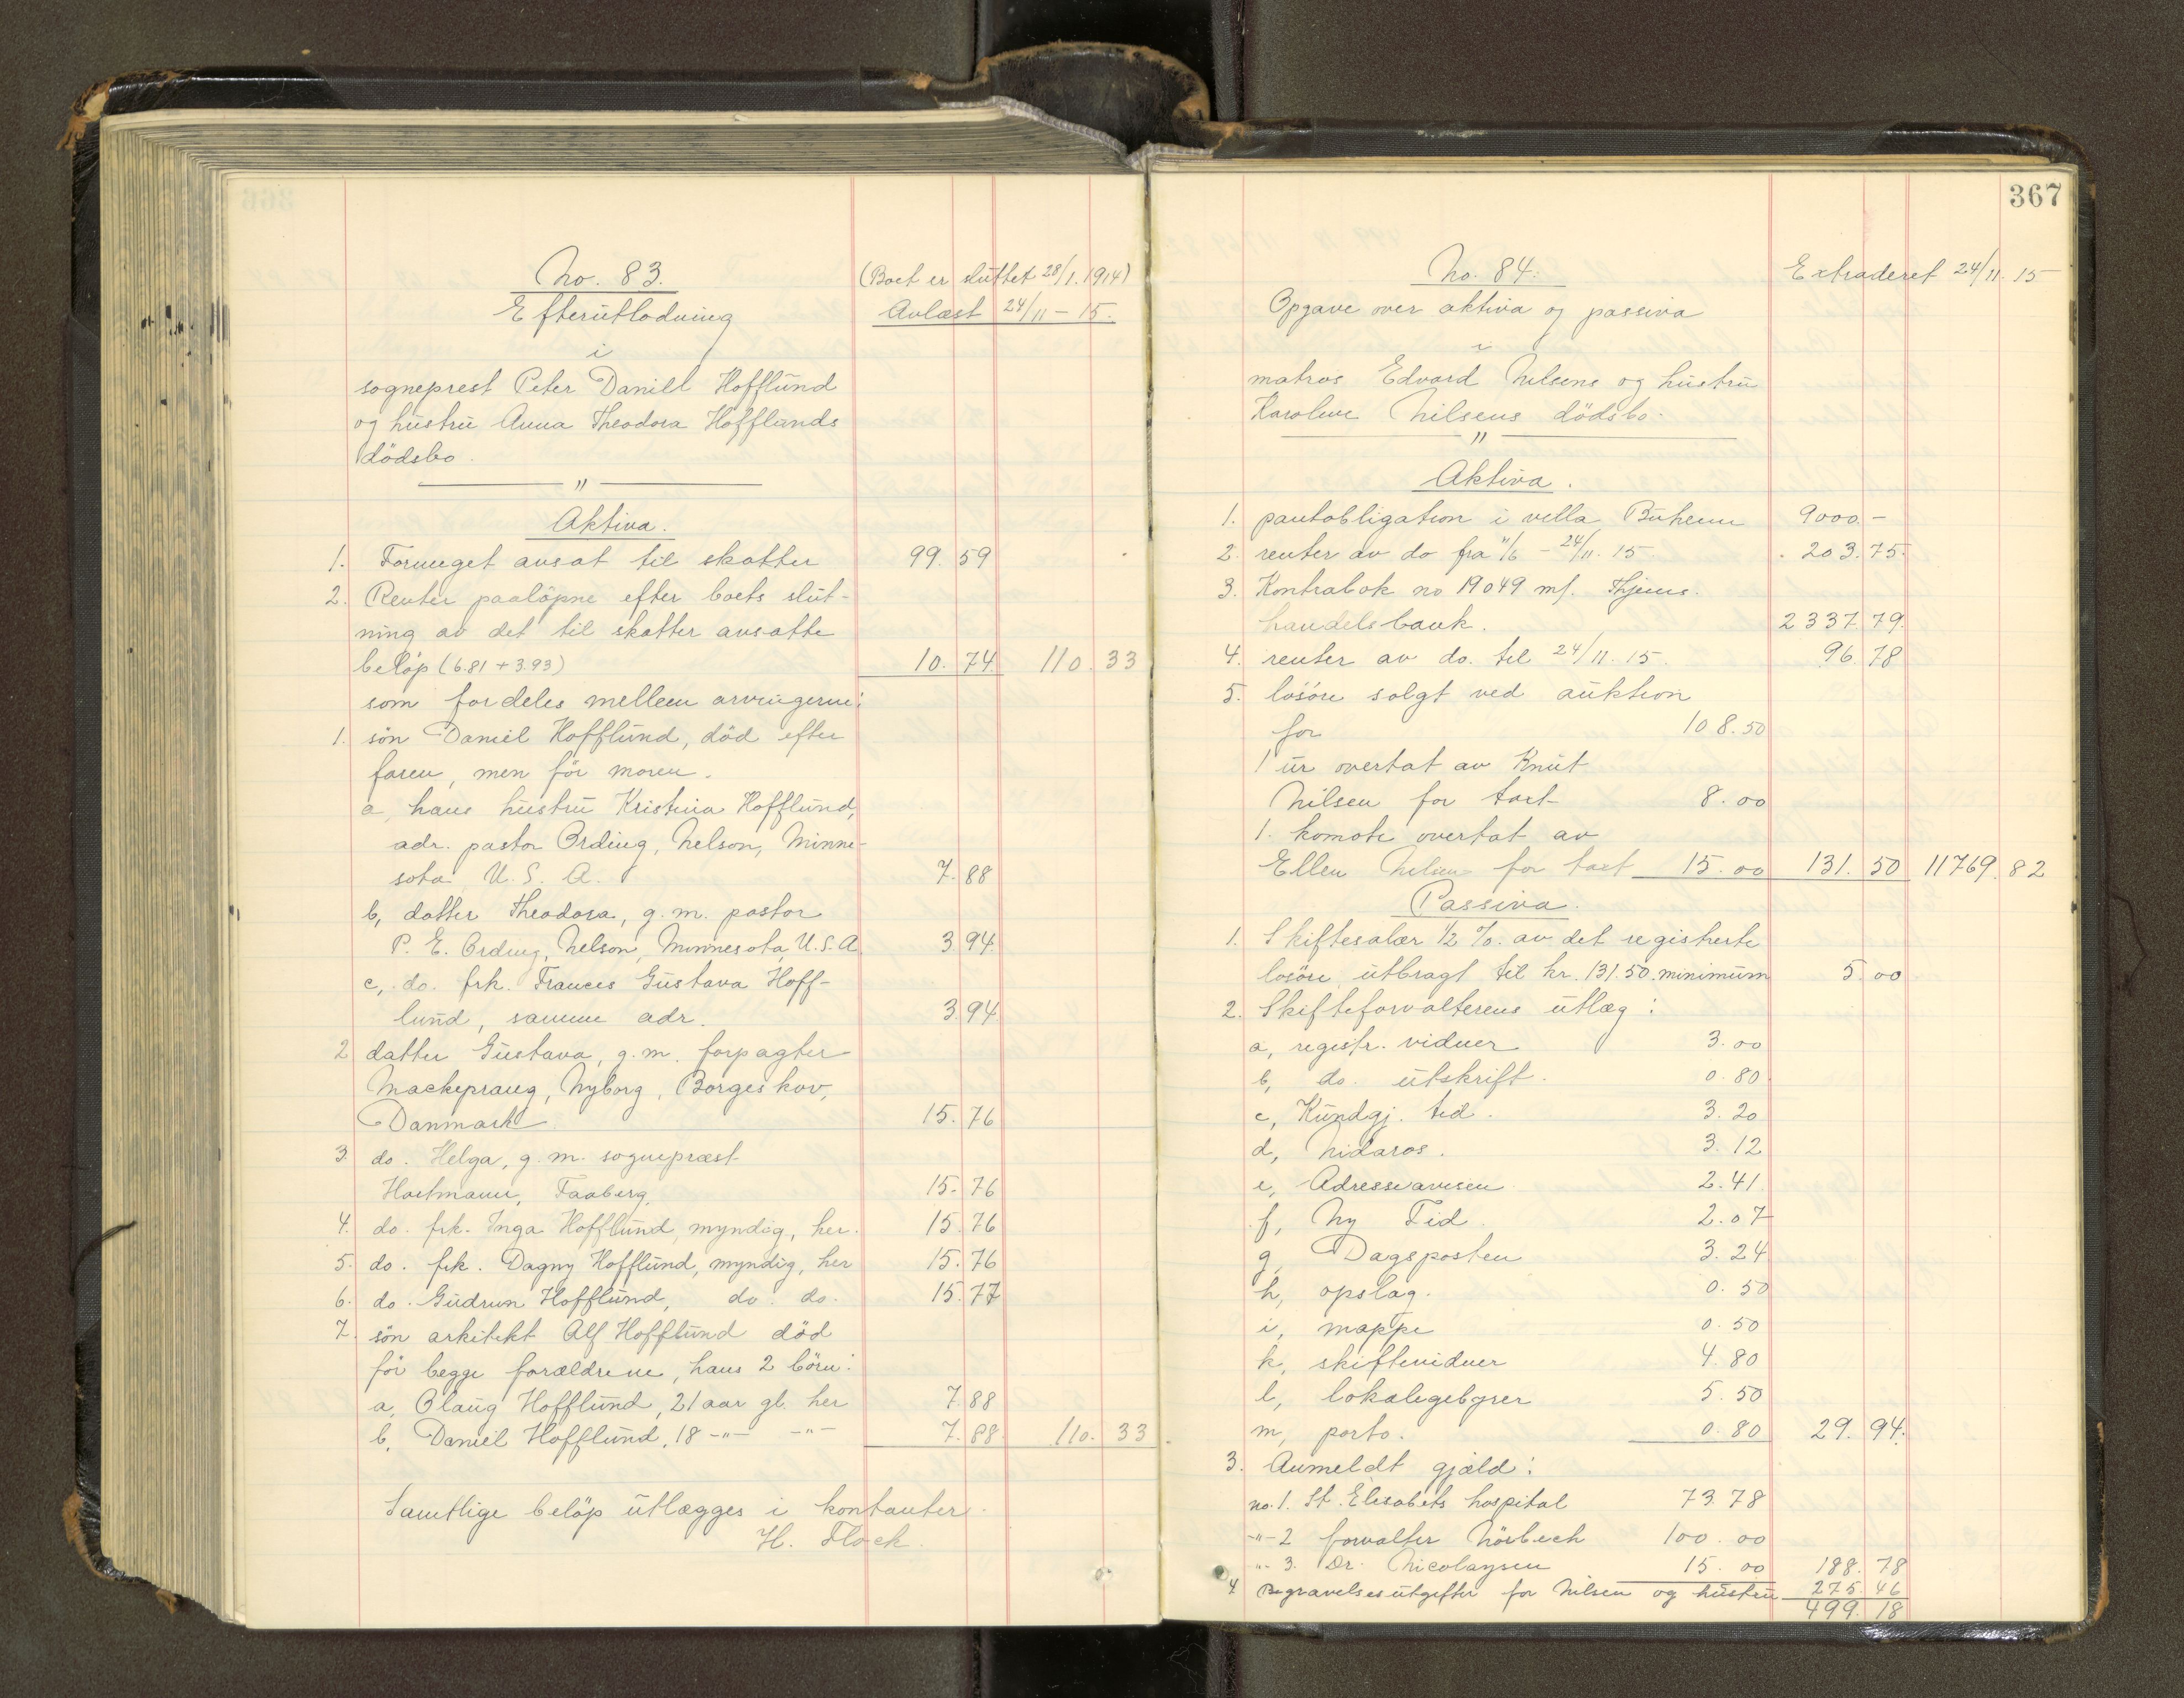 No. 83. (Boet er sluttet 28/1. 1914)
Efterutlodning Avlæst 24/11 - 15.
i
sogneprest Peter Daniel Hofflund
og hustru Anna Theodora Hofflunds
dödsbo.
"
Aktiva.
1. Formuget avsat til skatter 99.59
2. Renter paalöpne efter boets slut-
ning av det til skatter avsatte
belöp (6.81 + 3.93) 10.74 110.33
som fordeles mellem arvingerne:
1. sön Daniel Hofflund, död efter
faren, men för moren.
a, hans hustru Kristina Hofflund,
adr. pastor Ording, Nelson, Minne-
sota U. S. A. 7.88
b, datter Theodora, g. m. pastor
P. E. Ording, Nelson, Minnesota, U. S. A 3.94
c, do. frk. Frances Gustava Hoff-
lund, samme adr. 3.94
2 datter Gustava, g. m. forpagter
Mackeprang, Nyborg, Borgeskov,
Danmark 15.76
3. do. Helga, g. m. sogneprest
Hartmann, Faaberg. 15.76
4. do. frk. Inga Hofflund, myndig, her. 15.76
5. do. frk. Dagny Hofflund, myndig, her 15.76
6. do. Gudrun Hofflund, do. do. 15.77
7. sön arkitekt Alf Hofflund död
för begge forældrene, hans 2 börn:
a, Olaug Hofflund, 21 aar gl. her 7.88
b, Daniel Hofflund, 18 -"- -"- 7.88 110.33
Samtlige belöp utlægges i kontanter.
H. Flock.
367
No. 84. Extraderet 24/11. 15
Opgave over aktiva og passiva
i
matros Edvard Nilsens og hustru
Karoline Nilsens dödsbo.
"
Aktiva.
1. pantobligation i villa Buheim 9000.-
2. renter av do fra 11/6 - 24/11. 15. 203.75.
3. Kontrabok no 19049 mf. Thjems.
handelsbank. 2337.79.
4. renter av do. til 24/11. 15. 96.78
5. losöre solgt ved auktion
for 108.50
1 ur overtat av Knut
Nilsen for taxt 8.00
1. komode overtat av
Ellen Nilsen for taxt 15.00 131.50 11769.82
Passiva.
1. Skiftesalær 1/2 %. av det registrerte
losöre, utbragt til kr. 131.50. minimum 5.00
2. Skifteforvalterens utlæg:
a, registr. vidner 3.00
b, do. utskrift. 0.80
c, Kundgj. tid. 3.20
d, Nidaros. 3.12
e, Adresseavisen 2.41.
f, Ny Tid. 2.07
g, Dagsposten 3.24
h, opslag. 0.50
i, mappe 0.50
k, skiftevidner 4.80
l, lokalegebyrer 5.50
m, porto. 0.80 29.94.
3. Anmeldt gjæld:
no. 1. St. Elisabets hospital 73.78
-"- 2 forvalter Nörbech 100.00
"- 3. Dr. Nicolaysen 15.00 188.78
4 Begravelsesutgifter for Nilsen og hustru 275.46
499.18